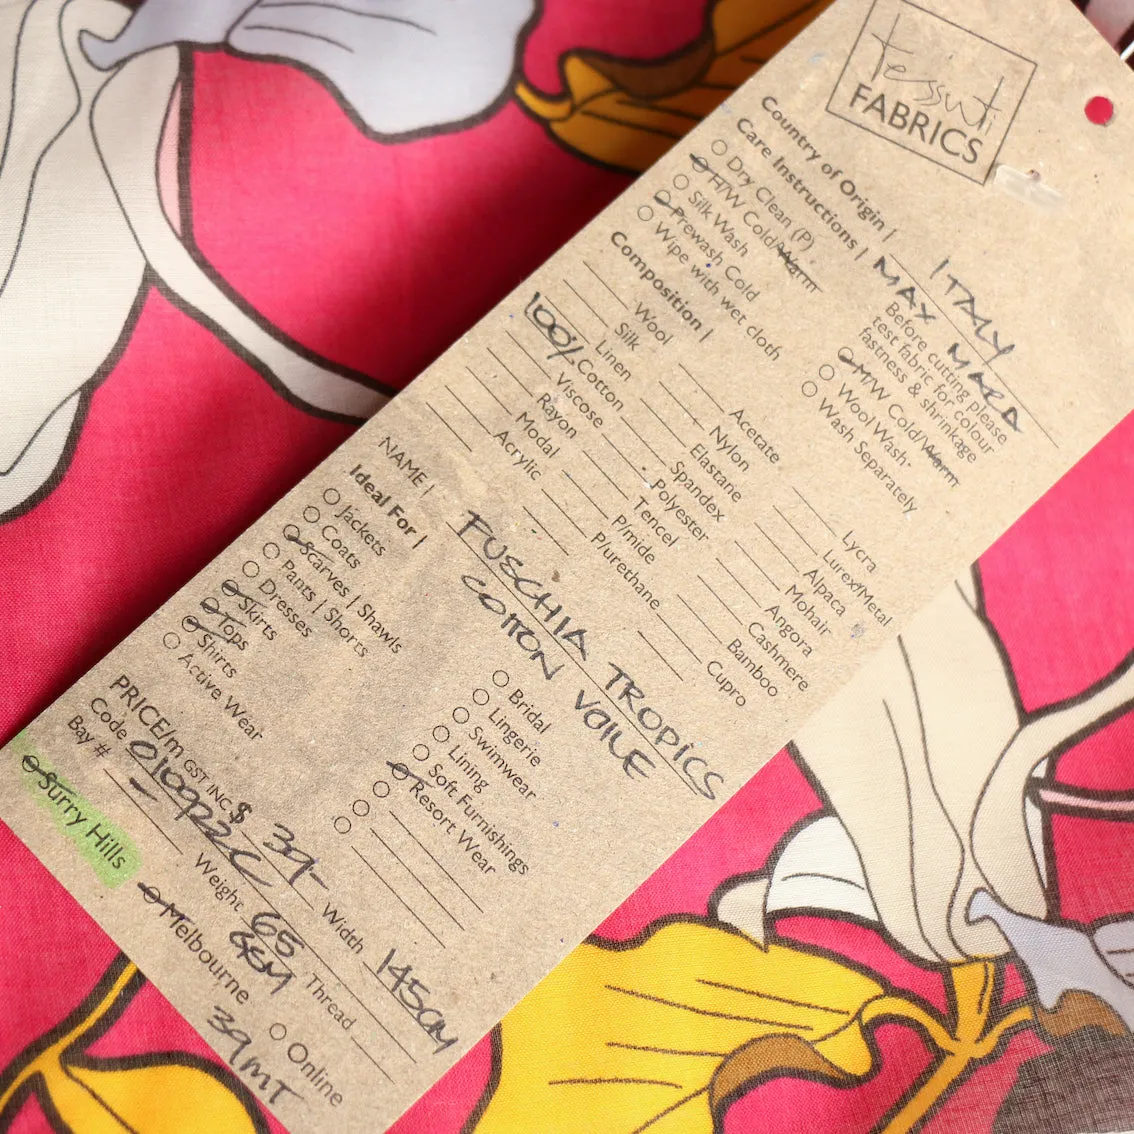 tessuti
FABRICS
Country of Origin | ITALY
Care Instructions | MAX MARA
Dry Clean (P)
H/W Cold/Warm
Silk Wash
Prewash Cold
Wipe with wet cloth
Before cutting please
test fabric for colour
fastness & shrinkage
M/W Cold/Warm
Wool Wash
Wash Separately
Composition |
Wool
Silk
Linen
100% Cotton
Viscose
Rayon
Modal
Acrylic
Acetate
Nylon
Elastane
Spandex
Polyester
Tencel
P/mide
P/urethane
Lycra
Lurex/Metal
Alpaca
Mohair
Angora
Cashmere
Bamboo
Cupro
NAME | FUSCHIA TROPICS
COTTON VOILE
Ideal For |
Jackets
Coats
Scarves | Shawls
Pants | Shorts
Dresses
Skirts
Tops
Shirts
Active Wear
Bridal
Lingerie
Swimwear
Lining
Soft Furnishings
Resort Wear
PRICE/m GST INC $ 39- Width 145CM
Code 010922C Weight 65 GSM Thread
Bay # -
Surry Hills Melbourne Online
39MT